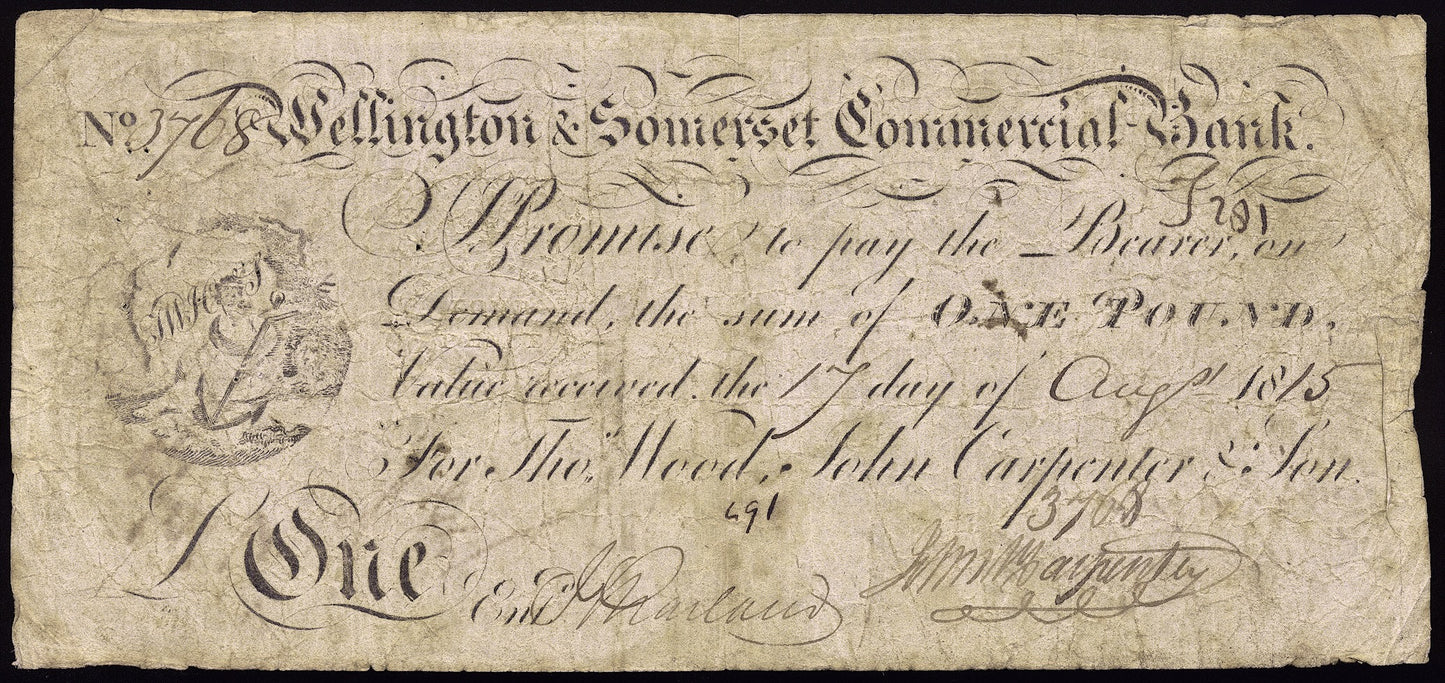 No. 3768 Wellington & Somerset Commercial Bank.
I Promise to pay the Bearer, on
Demand, the sum of ONE POUND,
Value received the 17 day of Augst 1815
For Thos. Wood, John Carpenter & Son.
3768
£ One
Entd
Carpenter